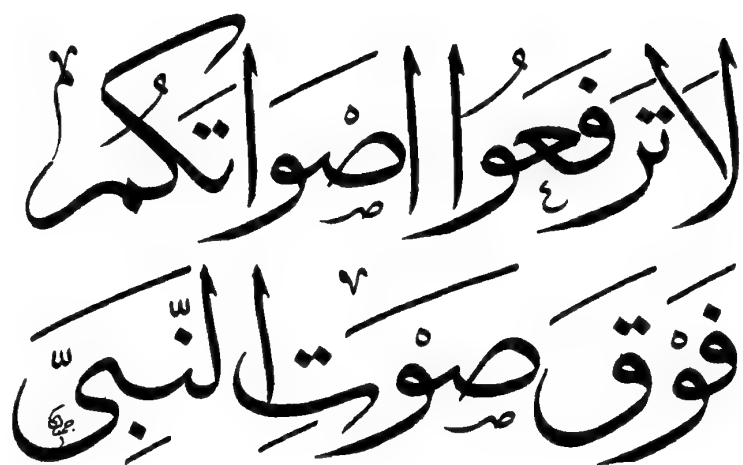 لَا تَرْفَعُوا اَصْوَاتَكُمْ
فَوْقَ صَوْتِ النَّبِيِّ